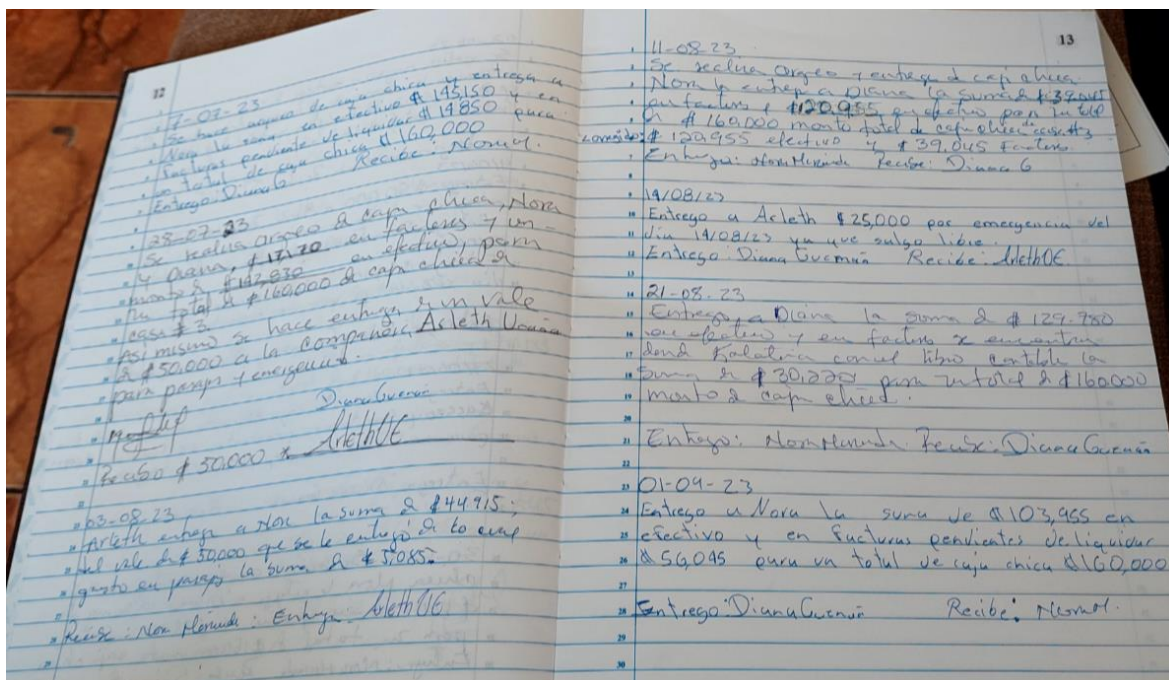 12
7-07-23
Se hace arqueo de caja chica y entrega a
Nora la suma en efectivo ₡ 145,150 y en
facturas pendiente de liquidar ₡ 14 850 para
un total de caja chica ₡ 160,000
Entrego: Diana G Recibe: Nora M.
28-07-23
Se realiza arqeo d caja chica, Nora
y Diana, en facturas y un
monto d en efectivo, para
un total d ₡160,000 d caja chica d
casa # 3.
Asi mismo se hace entrega d un vale
d ₡ 50,000 a la compañera Arleth
para pasajes y emergencias.
Diana Guzmán
Recibo ₡ 50,000 x ArlethUE
03-08-23
Arleth entrega a Nora la suma d ₡44,915,
del vale d ₡ 50,000 que se le entregó d lo cual
gasto en pasajes la suma d ₡ 5,085.
Recibe: Nora : Entrega ArlethUE
13
11-08-23
Se realiza arqeo y entrega d caja chica
Nora y entrega a Diana la suma d ₡39.045
en facturas y en efectivo para un total
d ₡ 160.000 monto total de caja chica de casa #3
₡ 120,955 efectivo y ₡ 39,045 facturas.
Entrega: Nora Recibe: Diana G
14/08/23
Entrego a Arleth ₡ 25,000 por emergencia del
dia 14/08/23 ya que salgo libre.
Entrego: Diana Guzmán Recibe: ArlethUE
21-08-23
Entrega a Diana la suma d ₡ 129.780
en efectivo y en facturas se encuentra
con el libro contable la
suma d ₡ 30,220 para un total d ₡160.000
monto d caja chica.
Entrego: Nora Recibe: Diana Guzmán
01-09-23
Entrego a Nora la suma de ₡ 103,955 en
efectivo y en facturas pendientes de liquidar
₡ 56,045 para un total de caja chica ₡160,000
Entrego: Diana Guzmán Recibe: Nora M.